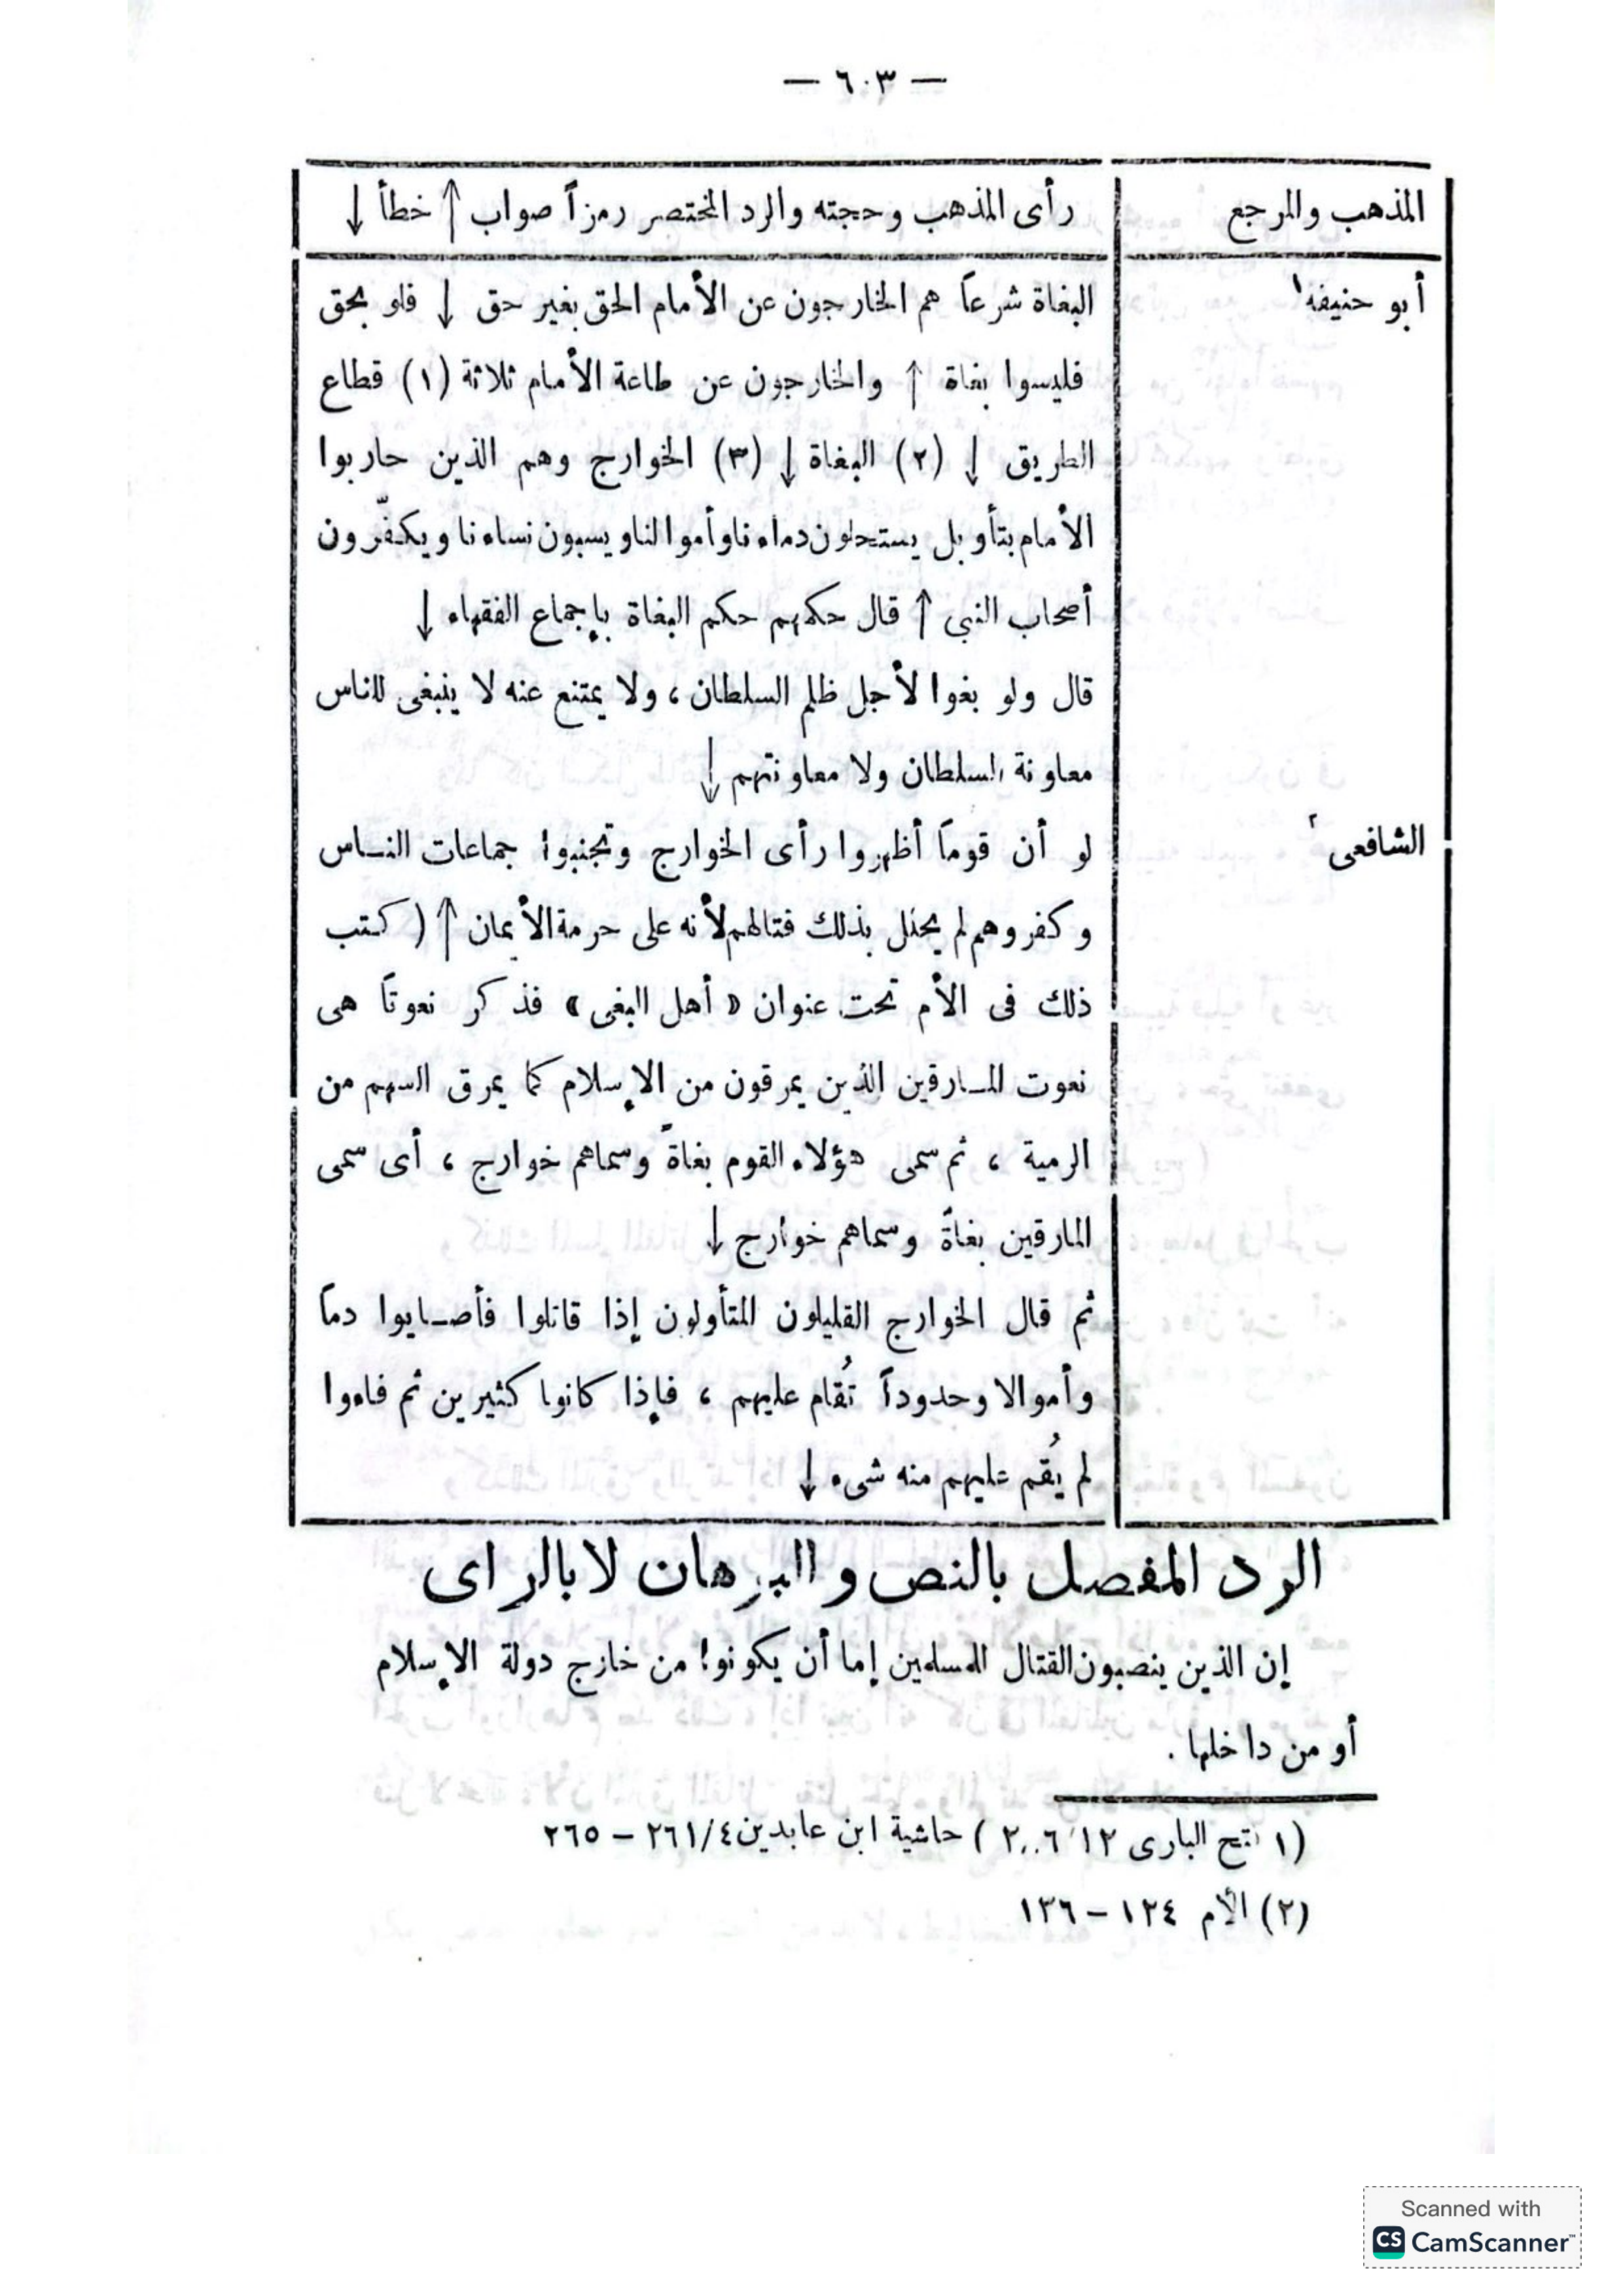 — ٦٠٣ —
المذهب والمرجع رأى المذهب وحجته والرد المختصر رمزاً صواب ↑ خطأ ↓
أبو حنيفه١ البغاة شرعاً هم الخارجون عن الأمام الحق بغير حق ↓ فلو بحق
فليسوا بغاة ↑ والخارجون عن طاعة الأمام ثلاثة (١) قطاع
الطريق ↓ (٢) البغاة ↓ (٣) الخوارج وهم الذين حاربوا
الأمام بتأويل يستحلون دماءنا وأموالنا ويسبون نساءنا ويكفّرون
أصحاب النبى ↑ قال حكمهم حكم البغاة بإجماع الفقهاء ↓
قال ولو بغوا لأجل ظلم السلطان ، ولا يمتنع عنه لا ينبغى للناس
معاونة السلطان ولا معاونتهم ↓
الشافعى٢ لو أن قوماً أظهروا رأى الخوارج وتجنبوا جماعات النـاس
وكفروهم لم يحلل بذلك قتالهم لأنه على حرمة الأيمان ↑ ( كتب
ذلك فى الأم تحت عنوان « أهل البغى » فذكر نعوتاً هى
نعوت المـارقين الذين يمرقون من الإسلام كما يمرق السهم من
الرمية ، ثم سمى هؤلاء القوم بغاةً وسماهم خوارج ، أى سمى
المارقين بغاةً وسماهم خوارج ↓
ثم قال الخوارج القليلون المتأولون إذا قاتلوا فأصـابوا دماً
وأموالا وحدوداً تُقام عليهم ، فإذا كانوا كثيرين ثم فاءوا
لم يُقم عليهم منه شىء ↓
الرد المفصل بالنص والبرهان لا بالراى
إن الذين ينصبون القتال للمسلمين إما أن يكونوا من خارج دولة الإسلام
أو من داخلها .
(١ البارى ١٢ ) حاشية ابن عابدين ٤/٢٦١ – ٢٦٥
(٢) الأم ١٢٤ – ١٣٦
Scanned with
CS CamScanner